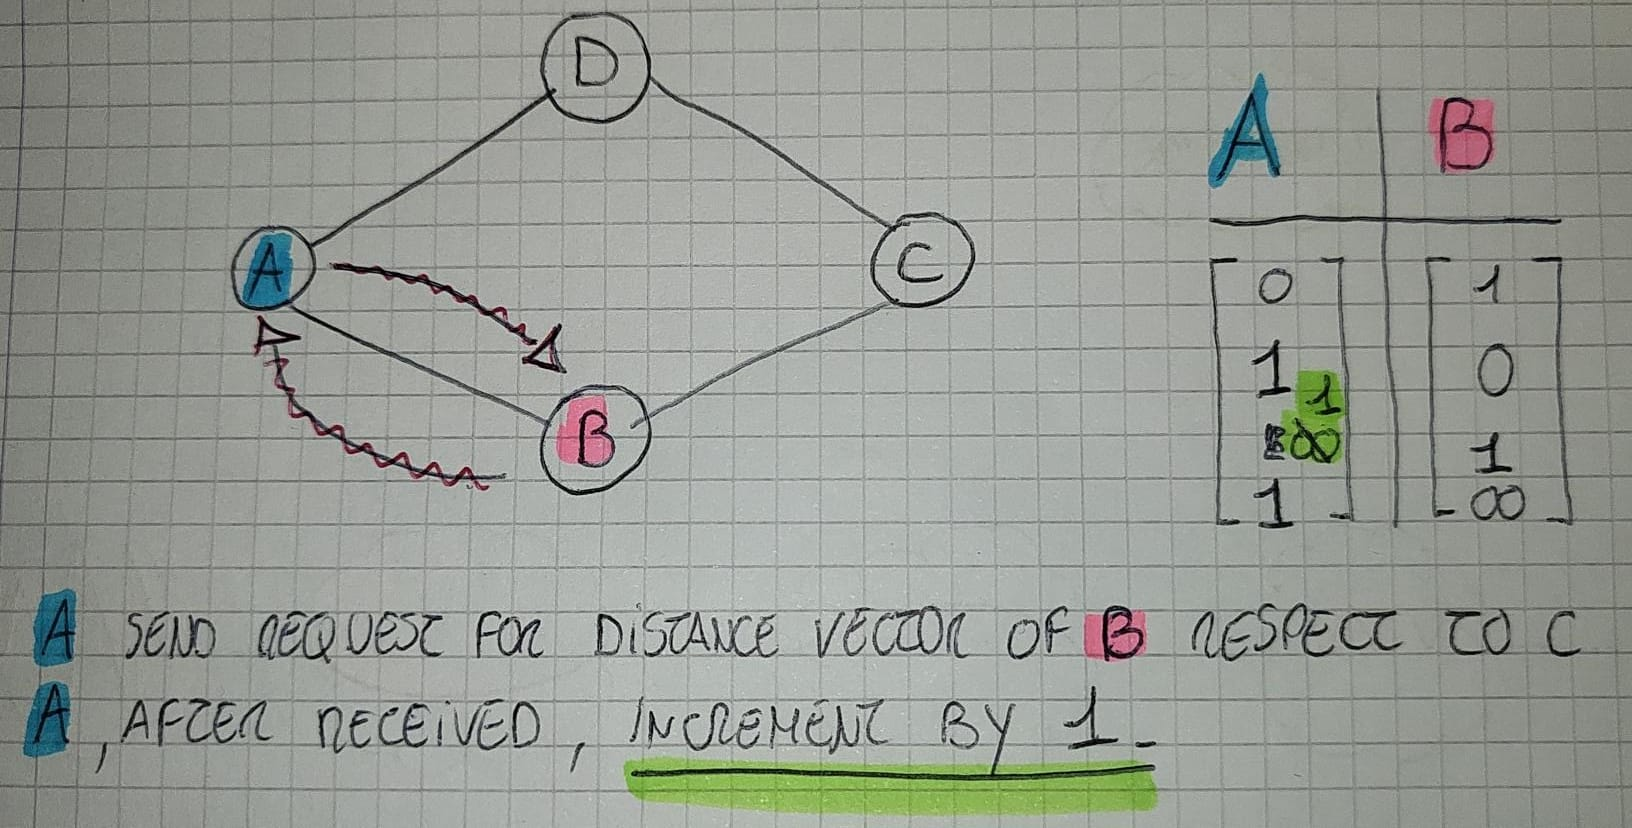 D
A
C
B
A B
0 1
1 0
1
∞ 1
1 ∞
A SEND REQUEST FOR DISTANCE VECTOR OF B RESPECT TO C
A, AFTER RECEIVED, INCREMENT BY 1.